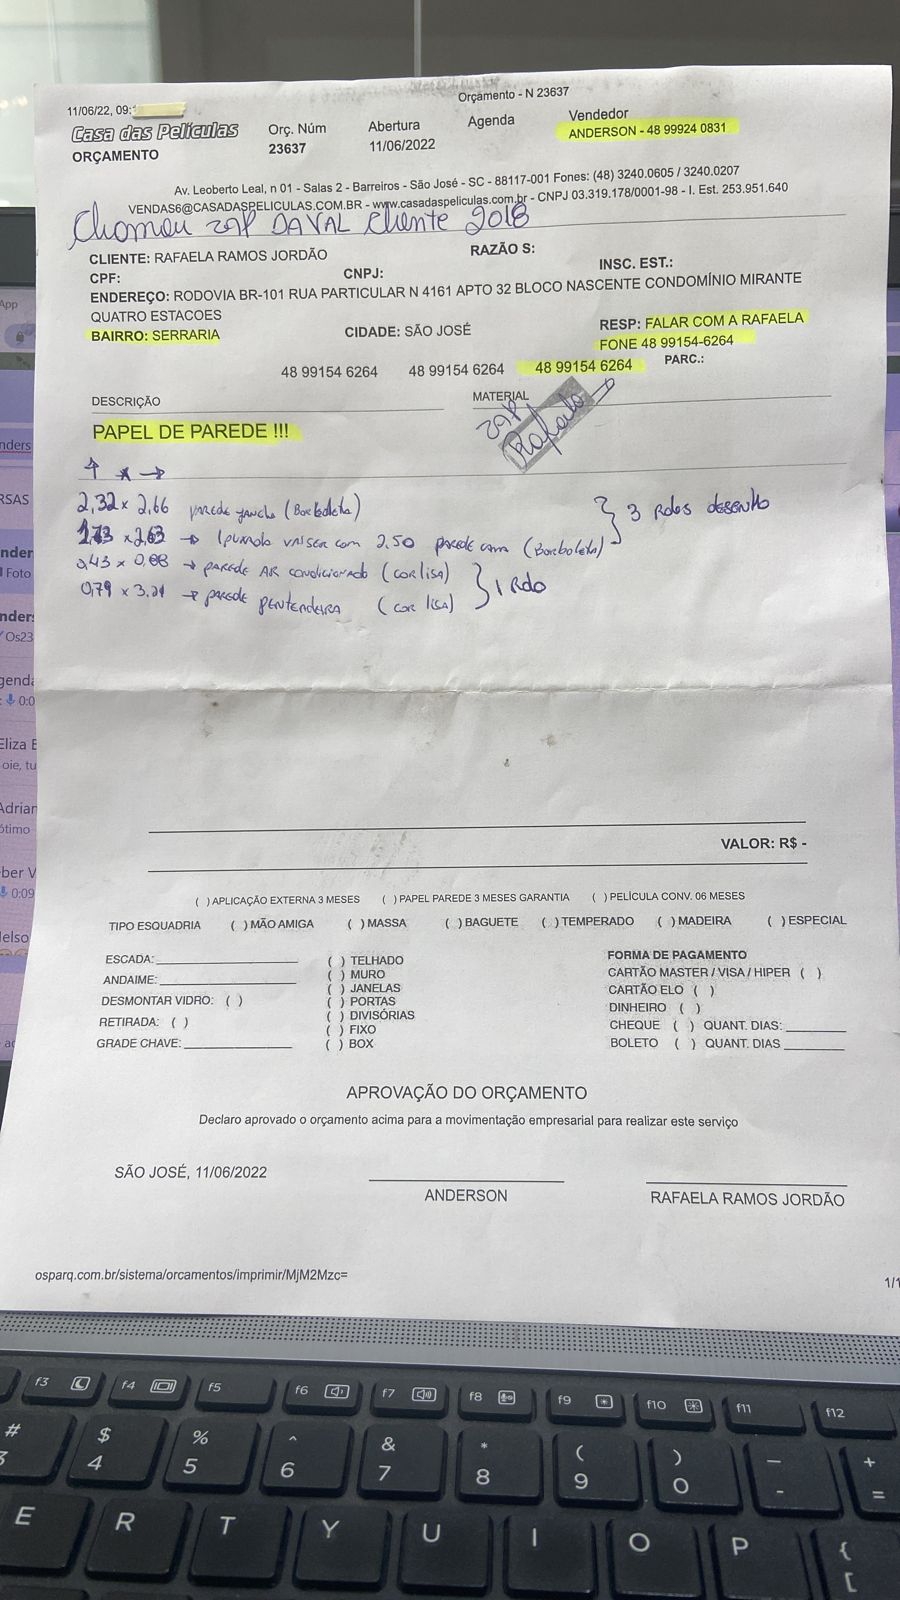 Orçamento - N 23637
11/06/22, 09:
Casa das Películas
ORÇAMENTO
Orç. Núm
23637
Abertura
11/06/2022
Agenda
Vendedor
ANDERSON - 48 99924 0831
Av. Leoberto Leal, n 01 - Salas 2 - Barreiros - São José - SC - 88117-001 Fones: (48) 3240.0605 / 3240.0207
VENDAS6@CASADASPELICULAS.COM.BR - www.casadaspeliculas.com.br - CNPJ 03.319.178/0001-98 - I. Est. 253.951.640
Chamou zap DAVAL Cliente 2018
CLIENTE: RAFAELA RAMOS JORDÃO RAZÃO S:
CPF: CNPJ: INSC. EST.:
ENDEREÇO: RODOVIA BR-101 RUA PARTICULAR N 4161 APTO 32 BLOCO NASCENTE CONDOMÍNIO MIRANTE
QUATRO ESTACOES
BAIRRO: SERRARIA CIDADE: SÃO JOSÉ RESP: FALAR COM A RAFAELA
FONE 48 99154-6264
48 99154 6264 48 99154 6264 48 99154 6264 PARC.:
DESCRIÇÃO MATERIAL
PAPEL DE PAREDE !!! zap Rafaela
2,32 x 2,66 PAREDE (Borboleta)
x 2,63 com 2,50 PAREDE cama (Borboleta) } 3 Rolos desenho
0,43 x 0,88 → PAREDE AR CONDICIONADO (cor lisa)
0,79 x → PAREDE PENTEADEIRA (cor lisa) } 1 Rolo
VALOR: R$ -
( ) APLICAÇÃO EXTERNA 3 MESES ( ) PAPEL PAREDE 3 MESES GARANTIA ( ) PELÍCULA CONV. 06 MESES
TIPO ESQUADRIA ( ) MÃO AMIGA ( ) MASSA ( ) BAGUETE ( ) TEMPERADO ( ) MADEIRA ( ) ESPECIAL
ESCADA:
ANDAIME:
DESMONTAR VIDRO: ( )
RETIRADA: ( )
GRADE CHAVE:
( ) TELHADO
( ) MURO
( ) JANELAS
( ) PORTAS
( ) DIVISÓRIAS
( ) FIXO
( ) BOX
FORMA DE PAGAMENTO
CARTÃO MASTER / VISA / HIPER ( )
CARTÃO ELO ( )
DINHEIRO ( )
CHEQUE ( ) QUANT. DIAS:
BOLETO ( ) QUANT. DIAS
APROVAÇÃO DO ORÇAMENTO
Declaro aprovado o orçamento acima para a movimentação empresarial para realizar este serviço
SÃO JOSÉ, 11/06/2022
ANDERSON
RAFAELA RAMOS JORDÃO
osparq.com.br/sistema/orcamentos/imprimir/MjM2Mzc=
1/1
f3 f4 f5 f6 f7 f8 f9 f10 f11 f12
# $ % ^ & * ( ) — +
4 5 6 7 8 9 0 - =
E R T Y U I O P { [